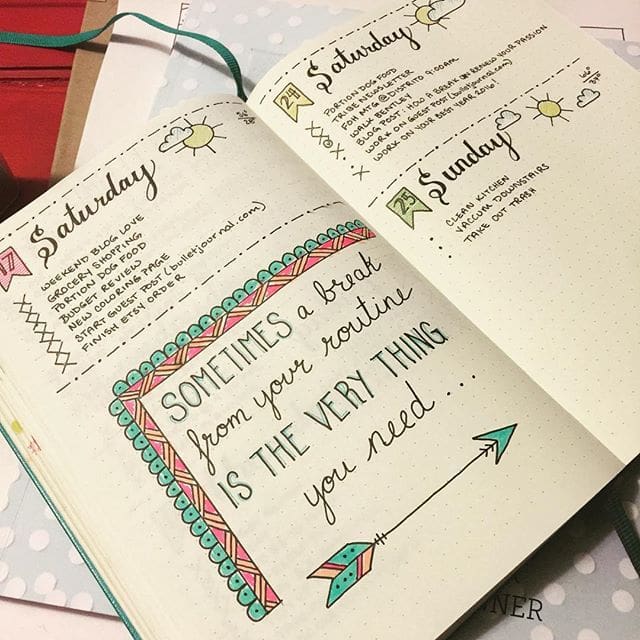 Saturday
17
WEEKEND BLOG LOVE
GROCERY SHOPPING
PORTION DOG FOOD
BUDGET REVIEW
NEW COLORING PAGE
START GUEST POST (bulletjournal.com)
FINISH ETSY ORDER
SOMETIMES a break
from your routine
IS THE VERY THING
you need...
Saturday
24
PORTION DOG FOOD
TRIBE NEWSLETTER
FOH MTG @ DISTRITO 9:00AM
WALK BENTLEY
BLOG POST: HOW A BREAK CAN RENEW YOUR PASSION
WORK ON GUEST POST (bulletjournal.com)
WORK ON YOUR BEST YEAR 2016!
Sunday
25
CLEAN KITCHEN
VACCUM DOWNSTAIRS
TAKE OUT TRASH